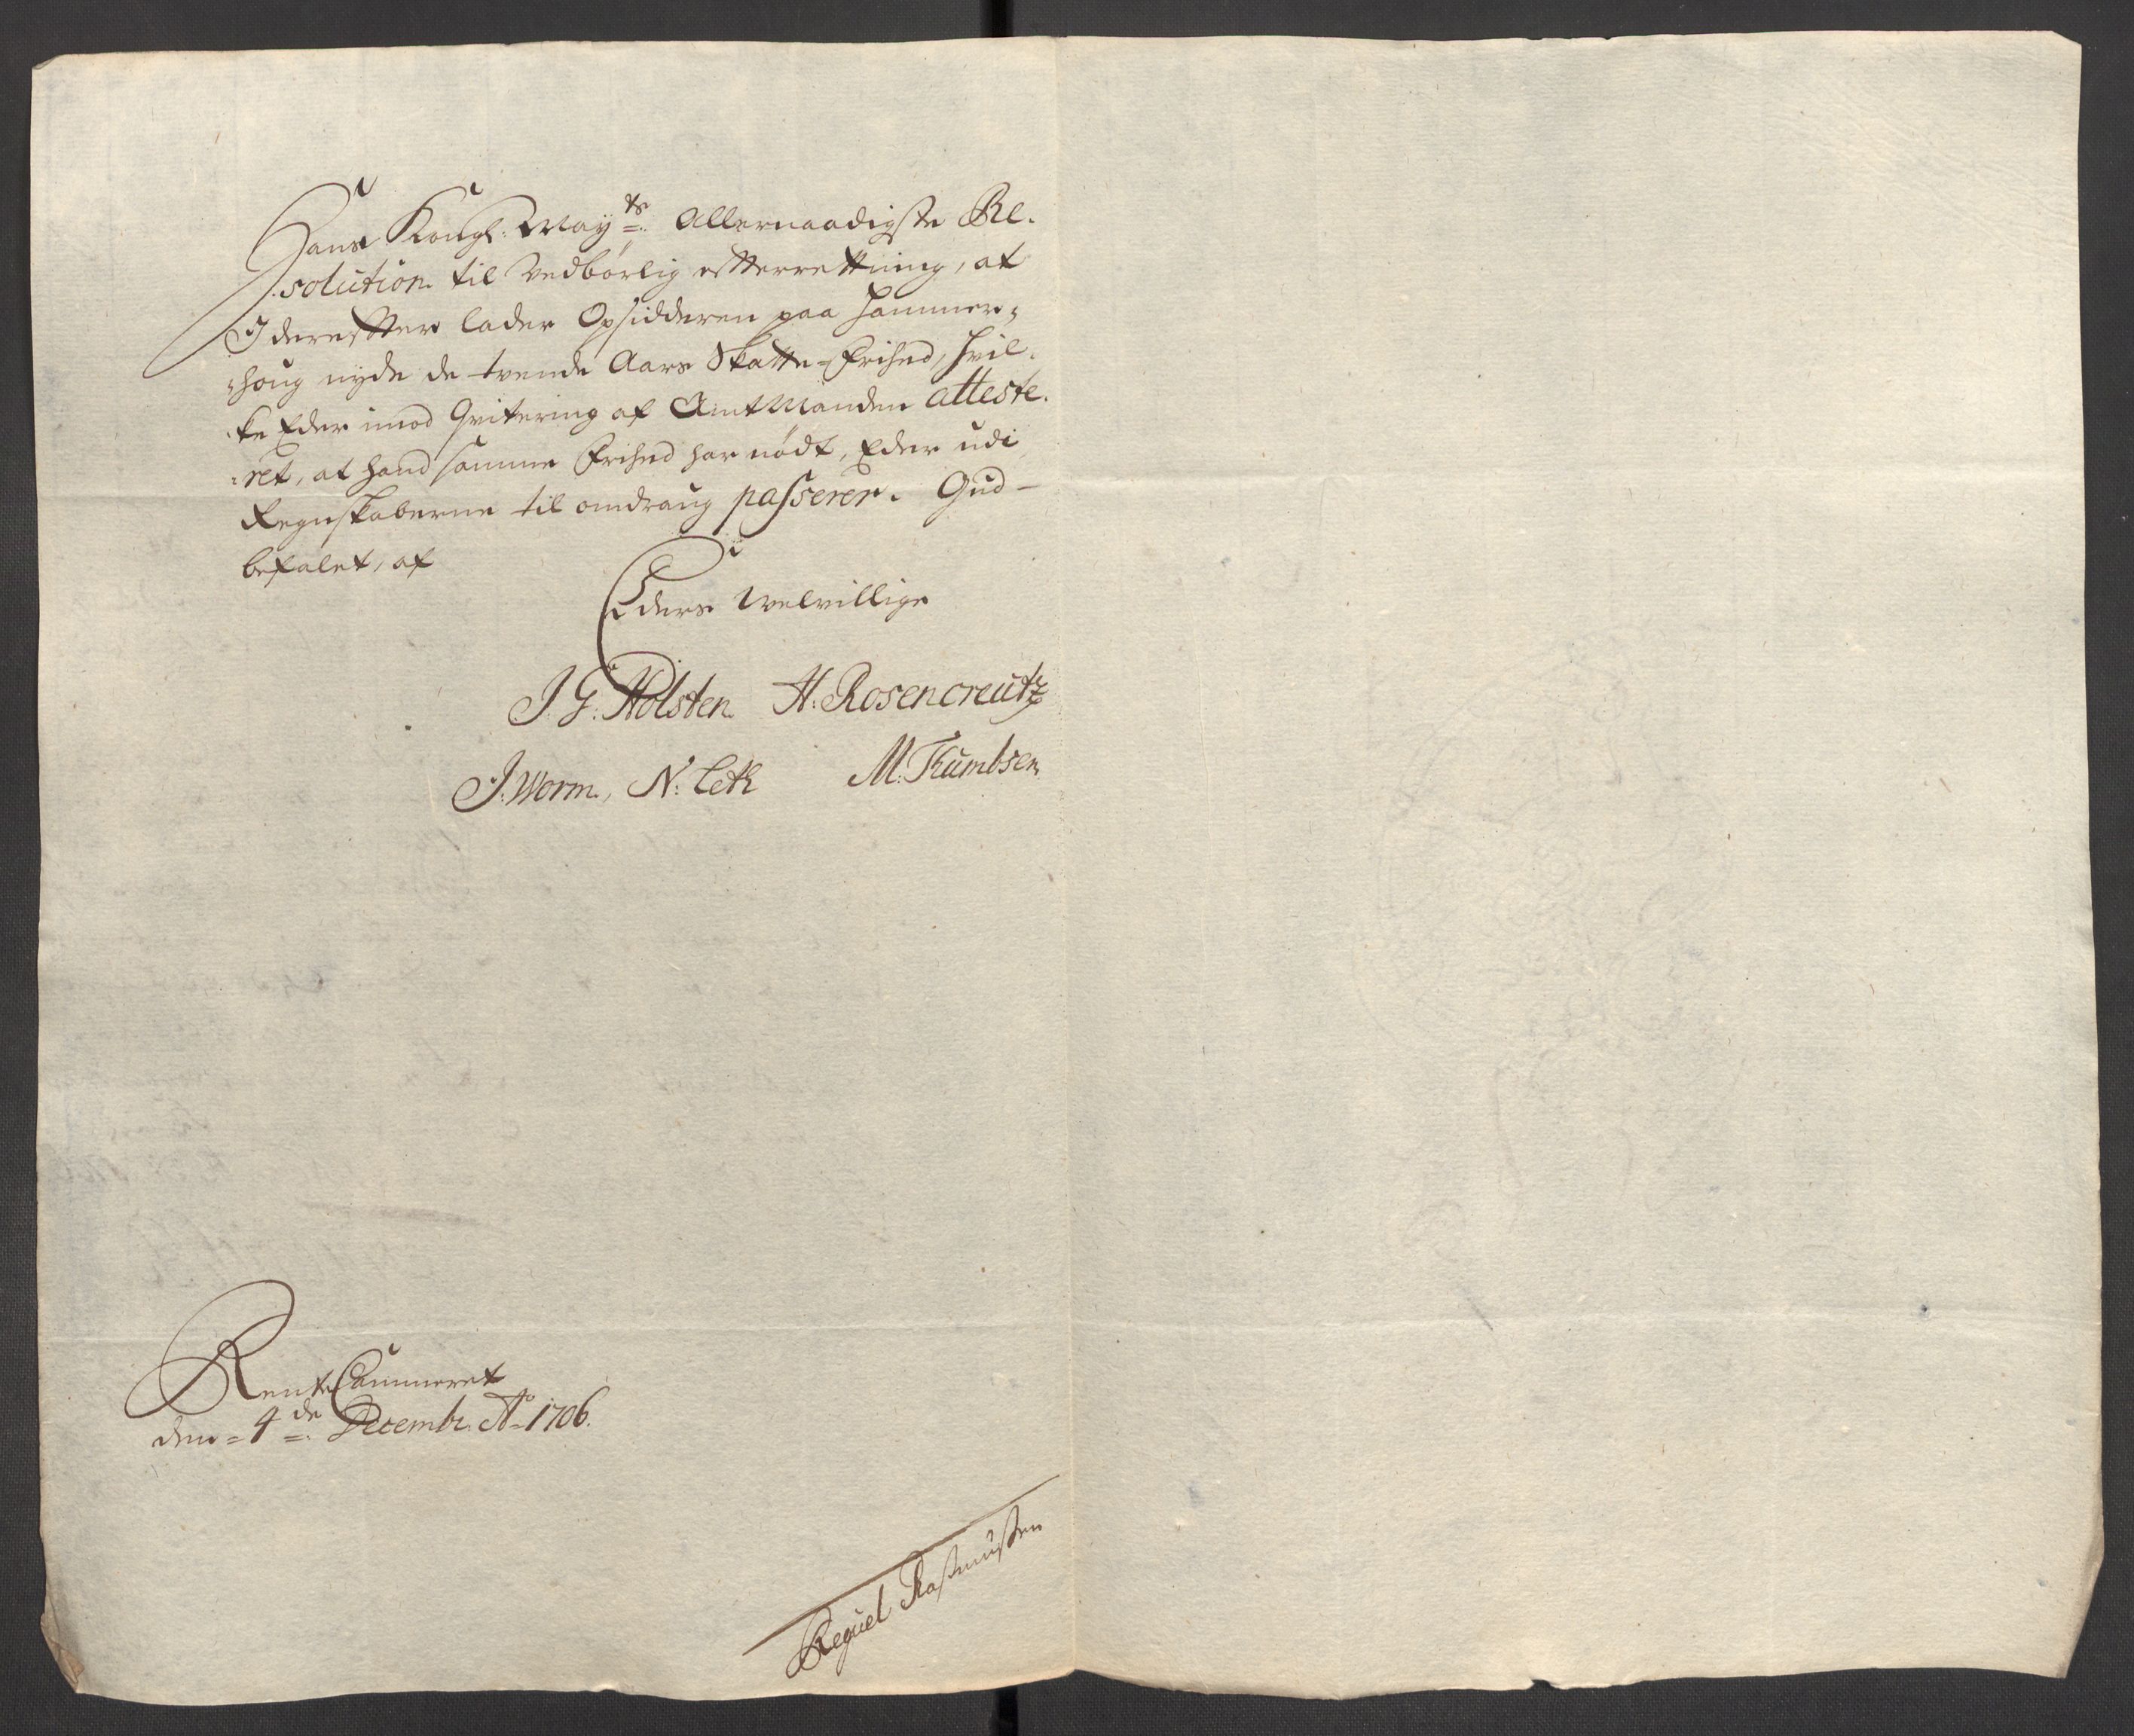 Hans Kongl: May:ts Allernaadigste Re-
solution til Vedbørlig efterretning, at
I derefter lader Opsidderen paa Hammer-
houg nyde de tvende Aars Skatte-Frihed, hvil-
ke Eder imod Qvitering af Amtmanden atteste-
ret, at hand samme Frihed har nødt, Eder udi
Regnskaberne til omdraug passerer. Gud
befalet, af
Eders Velvillige
J. G: Holsten H: Rosencreutz
J: Worm, N: Leth M: Thumbsen
Rente Cammeret
den 4de Decembr. Ao 1706.
Reguel Rasmussen